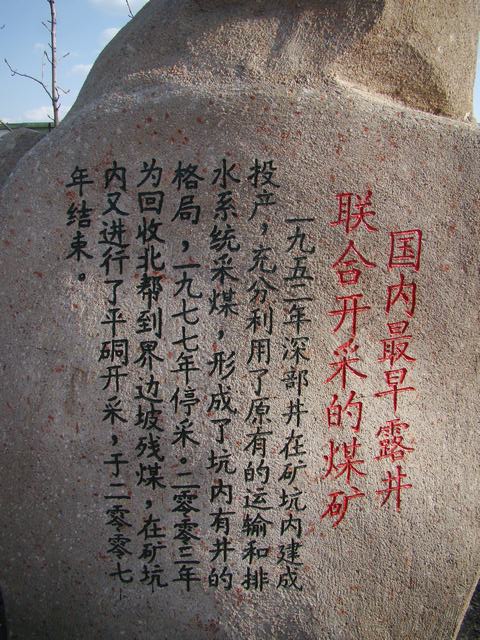 国内最早露井
联合开采的煤矿
一九五二年深部井在矿坑内建成
投产，充分利用了原有的运输和排
水系统采煤，形成了坑内有井的
格局，一九七七年停采。二零零三年
为回收北帮到界边坡残煤，在矿坑
内又进行了平硐开采，于二零零七
年结束。